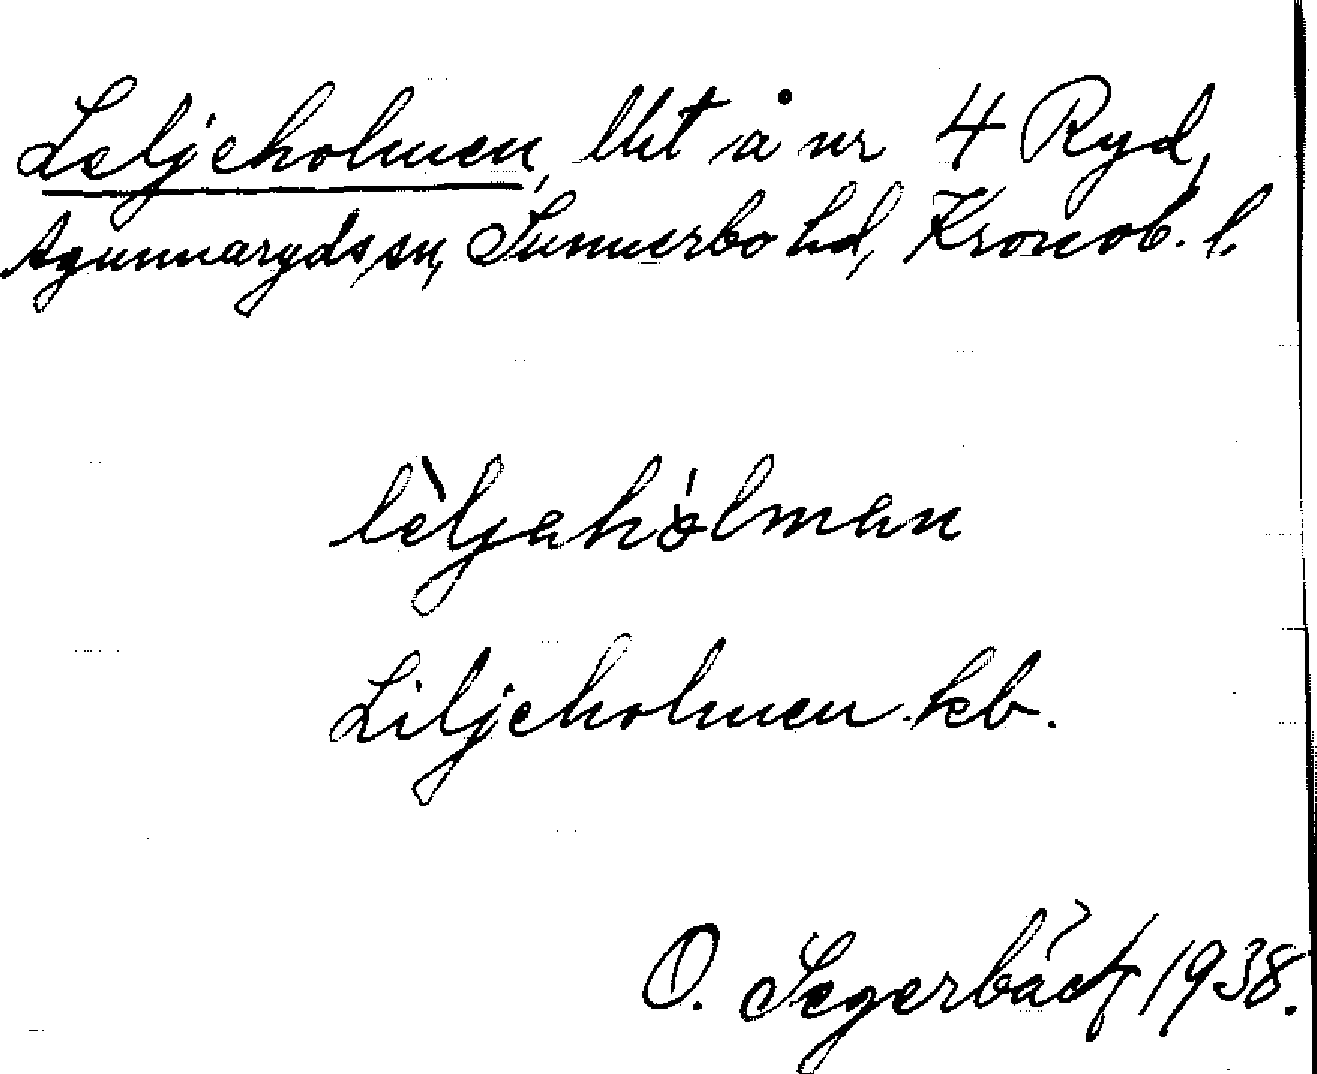 Leljeholmen, lht å nr 4 Ryd,
Agunnaryds sn, Sunnerbo hd, Kronob. l.
lèljahólman
Liljeholmen kb.
O. Segerbäck 1938.